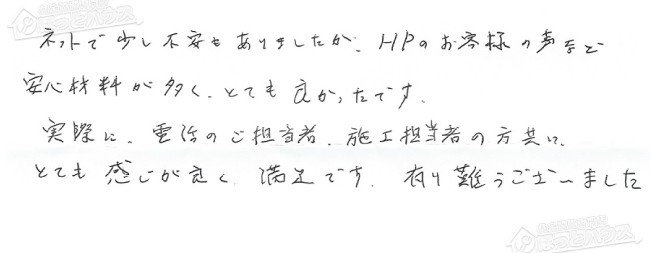 ネットで少し不安もありましたが、HPのお客様の声など
安心材料が多く、とても良かったです。
実際に、電話のご担当者、施工担当者の方共に、
とても感じが良く、満足です。有り難うございました